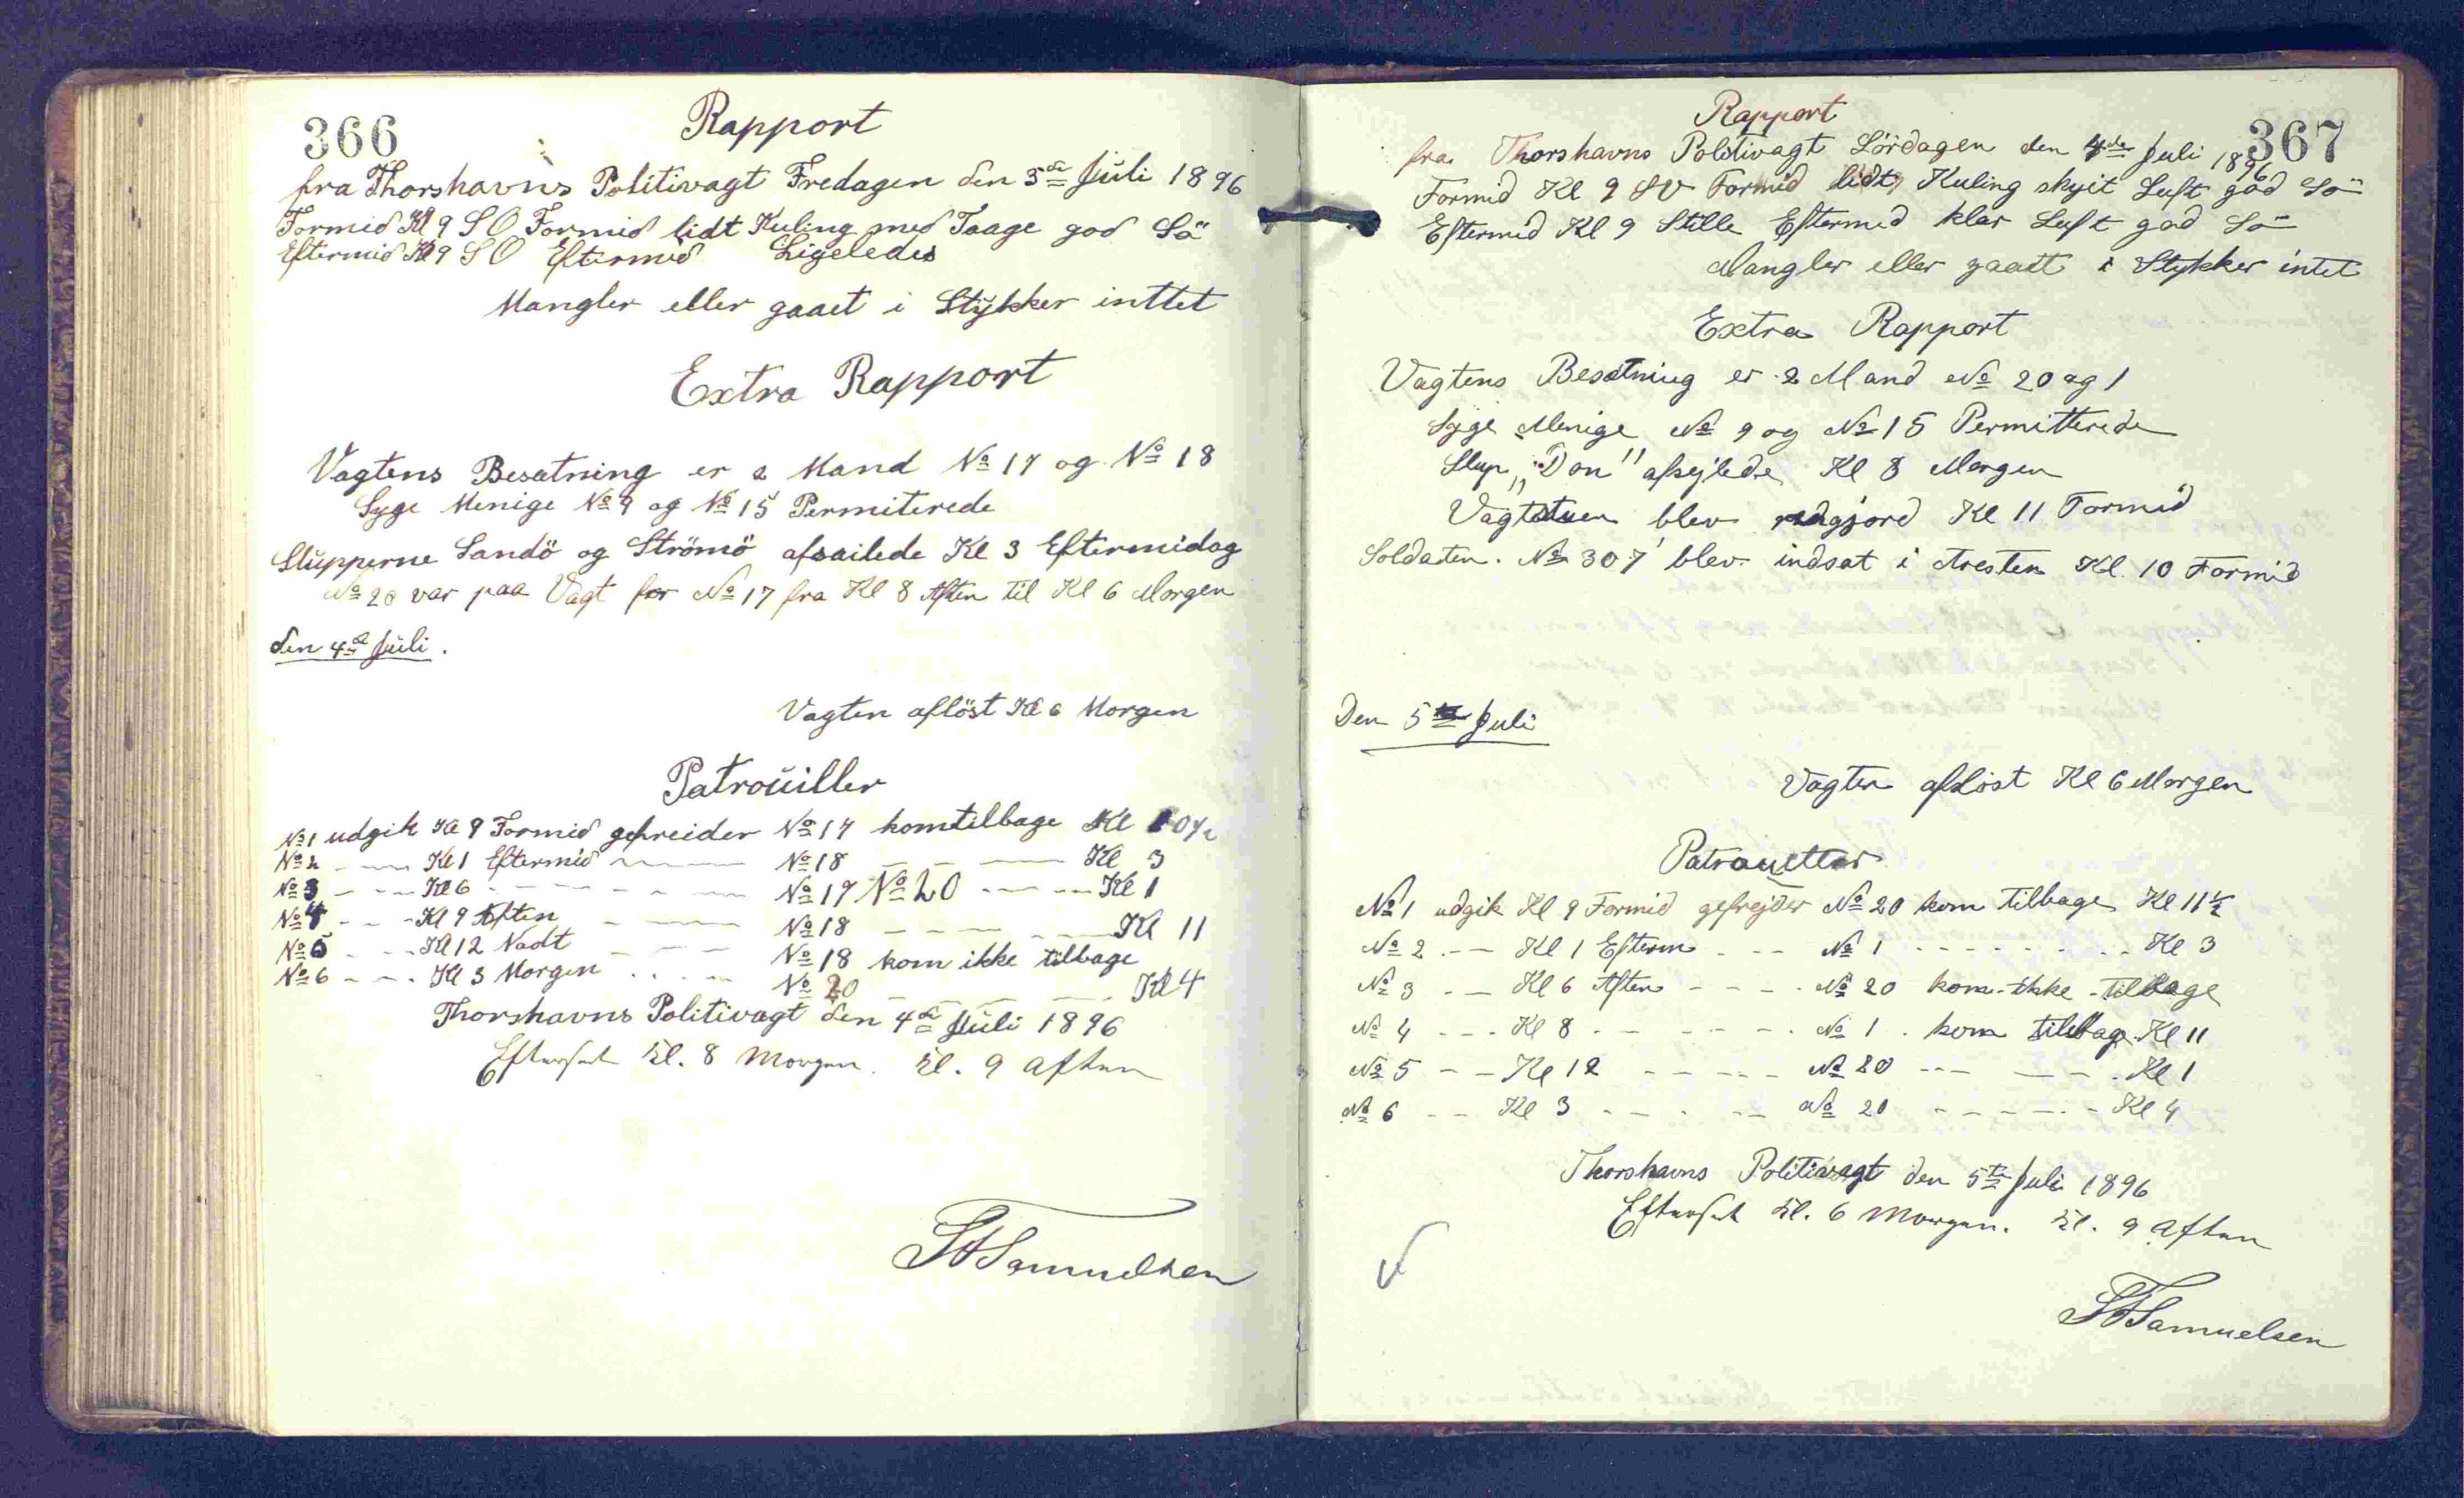 366
Rapport
fra Thorshavns Politivagt Fredagen den 3de Juli 1896
Formid Kl 9 SO Formid lidt Kuling med Taage god Sö
Eftermid Kl 9 SO Eftermid Ligeledes
Mangler eller gaaet i Stykker inttet
Extra Rapport
Vagtens Besætning er 2 Mand No 17 og No 18
Syge Menige No 9 og No 15 Permiterede
Slupperne Sandö og Strömö afsailede Kl 3 Eftermidag
No 20 var paa Vagt for No 17 fra Kl 8 Aften til Kl 6 Morgen
den 4de Juli.
Vagten aflöst Kl 6 Morgen
Patrouiller
No 1 udgik Kl 9 Formid gefreider No 17 komtilbage Kl 10½
No 2 - - Kl 1 Eftermid - - No 18 - - - Kl 3
No 3 - - Kl 6 - - - - No 17 No 20 - - - Kl 1
No 4 - - Kl 9 Aften - - No 18 - - - Kl 11
No 5 - - Kl 12 Nadt - - No 18 kom ikke tilbage
No 6 - - Kl 3 Morgen - - No 20 - - - Kl 4
Thorshavns Politivagt den 4de Juli 1896
Efterset kl. 8 Morgen. kl. 9 Aften
Samuelsen
367
Rapport
fra Thorshavns Politivagt Lördagen den 4de Juli 1896
Formid Kl 9 SV Formid lidt Kuling skyit Luft god Sö
Eftermid Kl 9 Stille Eftermid klar Luft god Sö
Mangler eller gaaet i Stykker intet
Extra Rapport
Vagtens Besætning er 2 Mand No 20 og 1
Syge Menige No 9 og No 15 Permitterede
Slup "Don" afsejlede Kl 8 Morgen
Vagtstuen blev rengjord Kl 11 Formid
Soldaten. No 307 blev indsat i Aresten Kl. 10 Formid
Den 5te Juli
Vagten aflöst Kl 6 Morgen
Patrouiller
No 1 udgik Kl 9 Formid gefrejder No 20 kom tilbage Kl 11½
No 2 - - Kl 1 Efterm - - No 1 - - - - Kl 3
No 3 - - Kl 6 Aften - - - No 20 kom ikke tilbage
No 4 - - Kl 8 - - - - No 1 kom tilbage Kl 11
No 5 - - Kl 12 - - - - No 20 - - - Kl 1
No 6 - - Kl 3 - - - - No 20 - - - - Kl 4
Thorshavns Politivagt den 5te Juli 1896
Efterset kl. 6 Morgen. kl. 9 Aften
Samuelsen